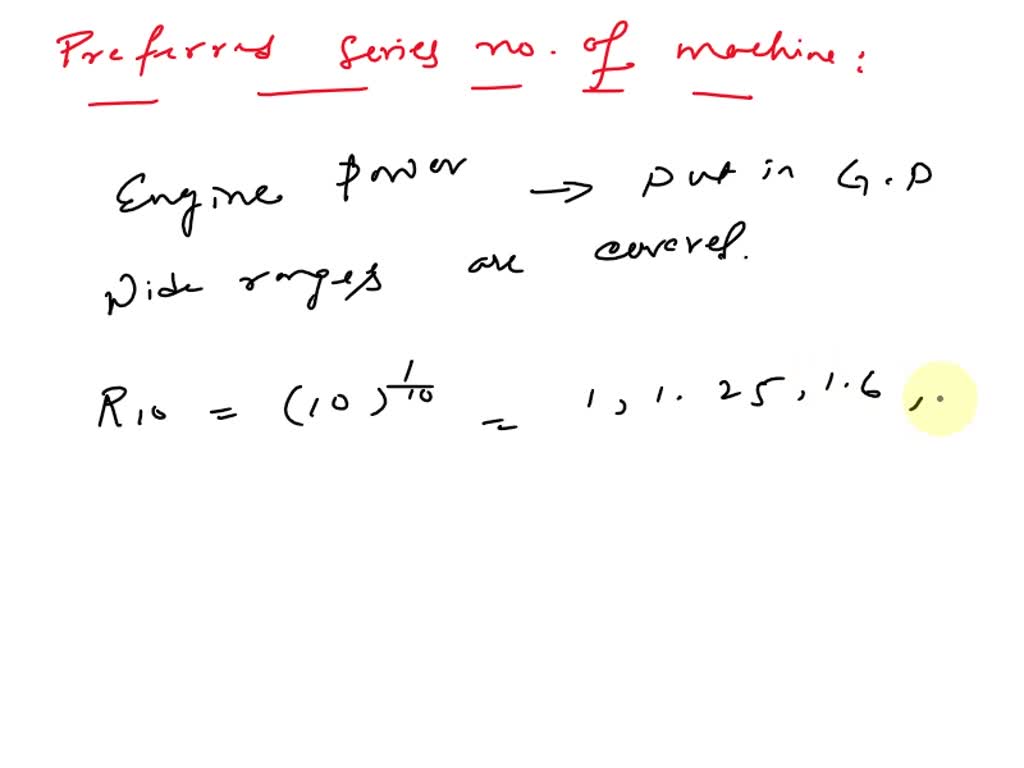 Preferred series no. of machine:
Engine power → put in G.P
Wide ranges are covered.
R10 = (10)^1/10 = 1, 1.25, 1.6, .